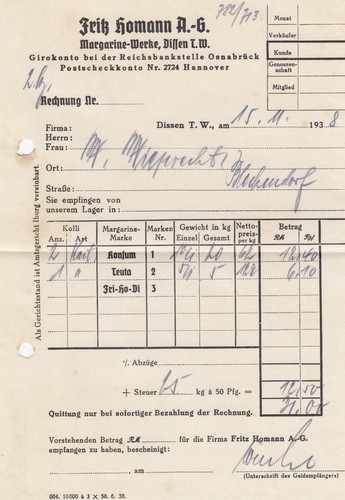 782/713.
Fritz Homann A.-G.
Margarine-Werke, Dissen T.W.
Girokonto bei der Reichsbankstelle Osnabrück
Postscheckkonto Nr. 2724 Hannover
Monat
Verkäufer
Kunde
Genossen-
schaft
Mitglied
Rechnung Nr.
Dissen T. W., am 15. 11. 1938
Firma:
Herrn:
Frau:
Ort:
Straße:
Sie empfingen von
unserem Lager in:
Als Gerichtsstand ist Amtsgericht Iburg vereinbart.
Kolli Margarine- Marken Gewicht in kg Netto- Betrag
Anz. Art Marke Nr. Einzel Gesamt preis per kg RM Rpf
2 Konsum 1 20 62 12,40
1 " Teuta 2 5 122 6,10
Fri-Ho-Di 3
% Abzüge
+ Steuer 25 kg à 50 Pfg. = 12,50
Quittung nur bei sofortiger Bezahlung der Rechnung. 31,00
Vorstehenden Betrag RM für die Firma Fritz Homann A.-G.
empfangen zu haben, bescheinigt:
, am
(Unterschrift des Geldempfängers)
604. 10000 à 3 × 50. 6. 38.